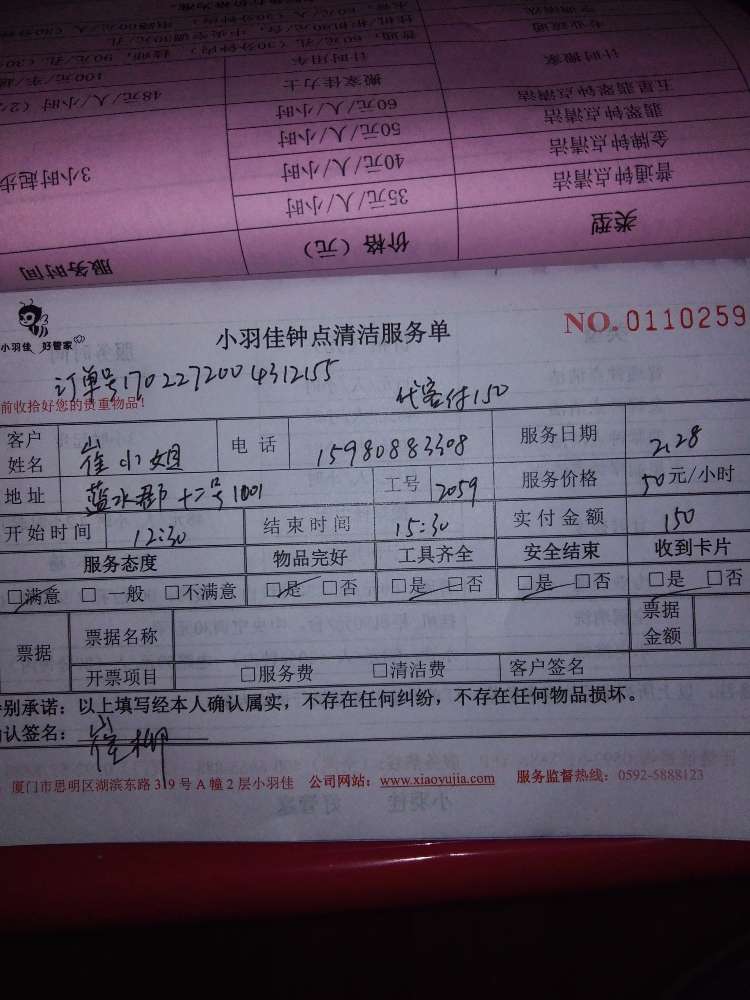 小羽佳 好管家
小羽佳钟点清洁服务单
NO. 0110259
订单号1702272004312155
代客付150
前收拾好您的贵重物品!
客户姓名 崔小姐 电话 15980883308 服务日期 2.28
地址 蓝水郡十二号1001 工号 2059 服务价格 50元/小时
开始时间 12:30 结束时间 15:30 实付金额 150
服务态度 物品完好 工具齐全 安全结束 收到卡片
□满意 □一般 □不满意 □是 □否 □是 □否 □是 □否 □是 □否
票据 票据名称 票据金额
开票项目 □服务费 □清洁费 客户签名
别承诺:以上填写经本人确认属实,不存在任何纠纷,不存在任何物品损坏。
认签名:崔柳
厦门市思明区湖滨东路319号A幢2层小羽佳 公司网站:www.xiaoyujia.com 服务监督热线:0592-5888123
类型 价格(元) 服务时间
普通钟点清洁 35元/人/小时
金牌钟点清洁 40元/人/小时
翡翠钟点清洁 50元/人/小时
五星翡翠钟点清洁 60元/人/小时
3小时起步
计时搬家 搬家佳力士 48元/人/小时
计时用车 100元/车/